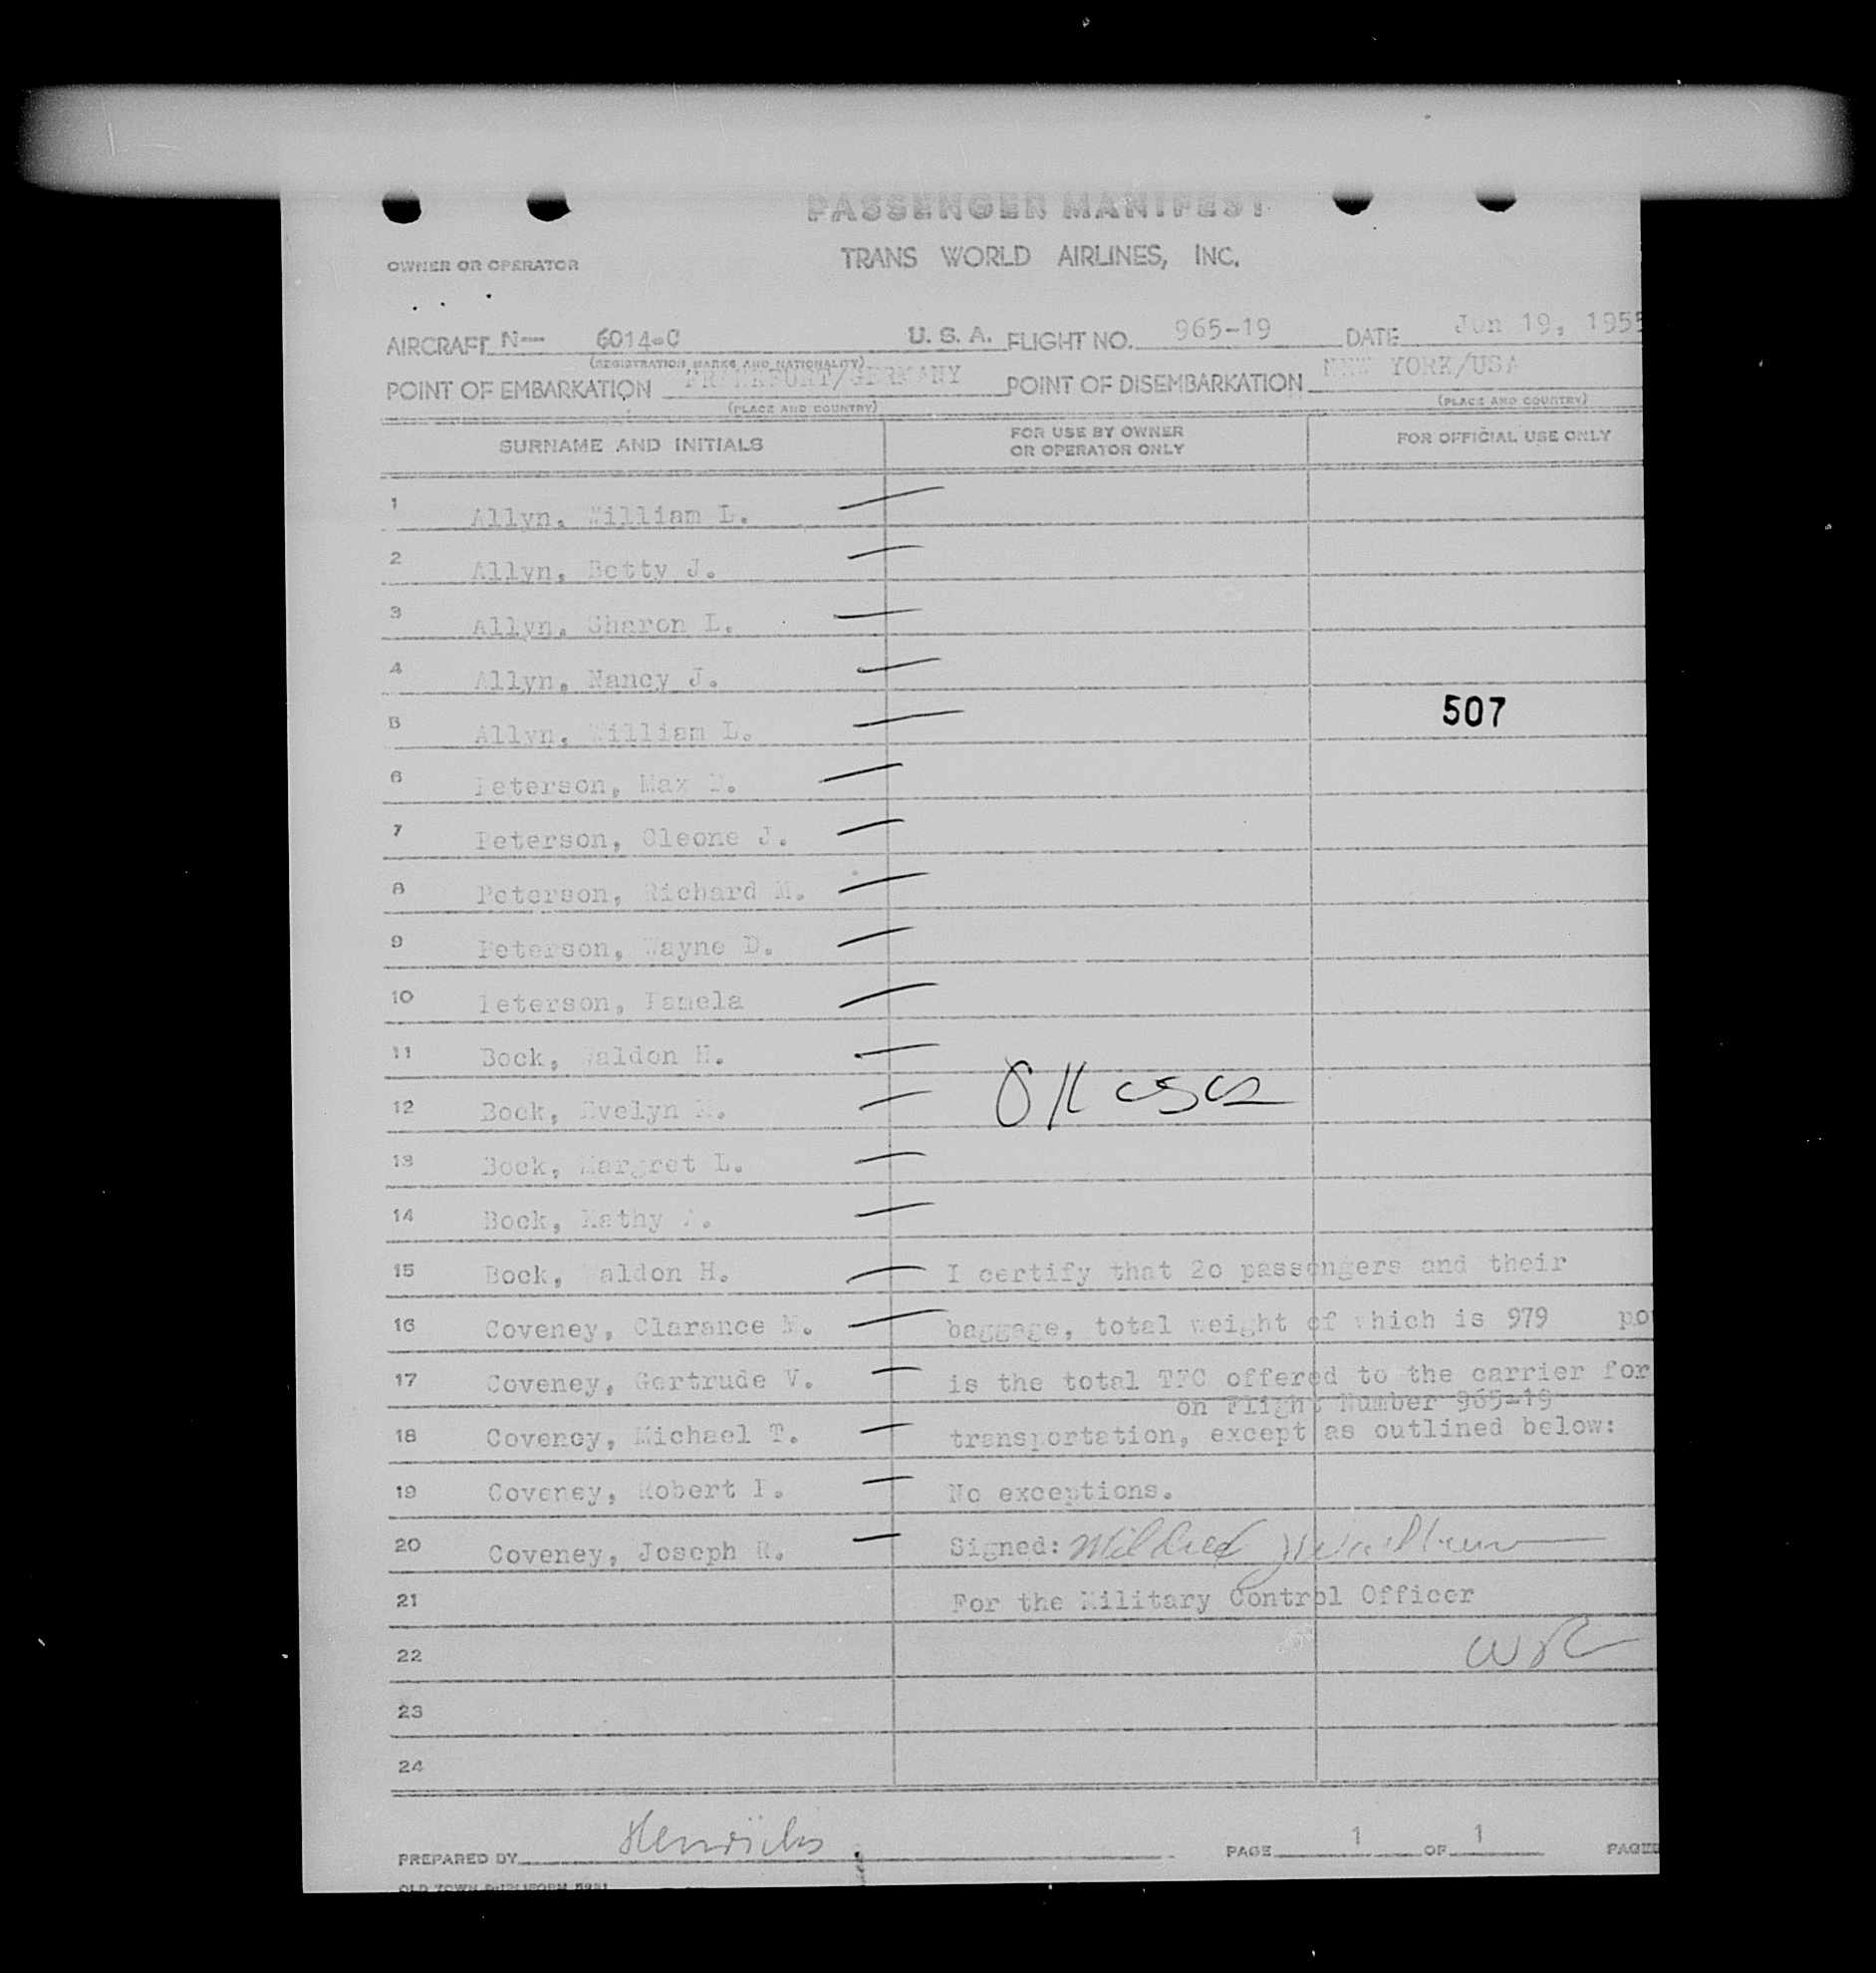 PASSENGER MANIFEST
OWNER OR OPERATOR
TRANS WORLD AIRLINES, INC.
AIRCRAFT N— 6014-C U. S. A. FLIGHT NO. 965-19 DATE Jun 19, 1955
(REGISTRATION MARKS AND NATIONALITY)
POINT OF EMBARKATION FRANKFURT/GERMANY POINT OF DISEMBARKATION NEW YORK/USA
(PLACE AND COUNTRY) (PLACE AND COUNTRY)
SURNAME AND INITIALS FOR USE BY OWNER OR OPERATOR ONLY FOR OFFICIAL USE ONLY
1 Allyn, William L.
2 Allyn, Betty J.
3 Allyn, Sharon L.
4 Allyn, Nancy J.
507
5 Allyn, William L.
6 Peterson, Max
7 Peterson, Cleone J.
8 Peterson, Richard M.
9 Peterson, Wayne D.
10 Peterson, Pamela
11 Bock, Waldon H.
12 Bock, Evelyn OK
13 Bock, Margret L.
14 Bock, Kathy
15 Bock, Waldon H. I certify that 2o passengers and their
16 Coveney, Clarance M. baggage, total weight of which is 979 po
17 Coveney, Gertrude V. is the total TFC offered to the carrier for
on Flight Number 965-19
18 Coveney, Michael T. transportation, except as outlined below:
19 Coveney, Robert I. No exceptions.
20 Coveney, Joseph R. Signed: Mildred
21 For the Military Control Officer
22
23
24
PREPARED BY Henrichs PAGE 1 OF 1 PAGES
OLD TOWN